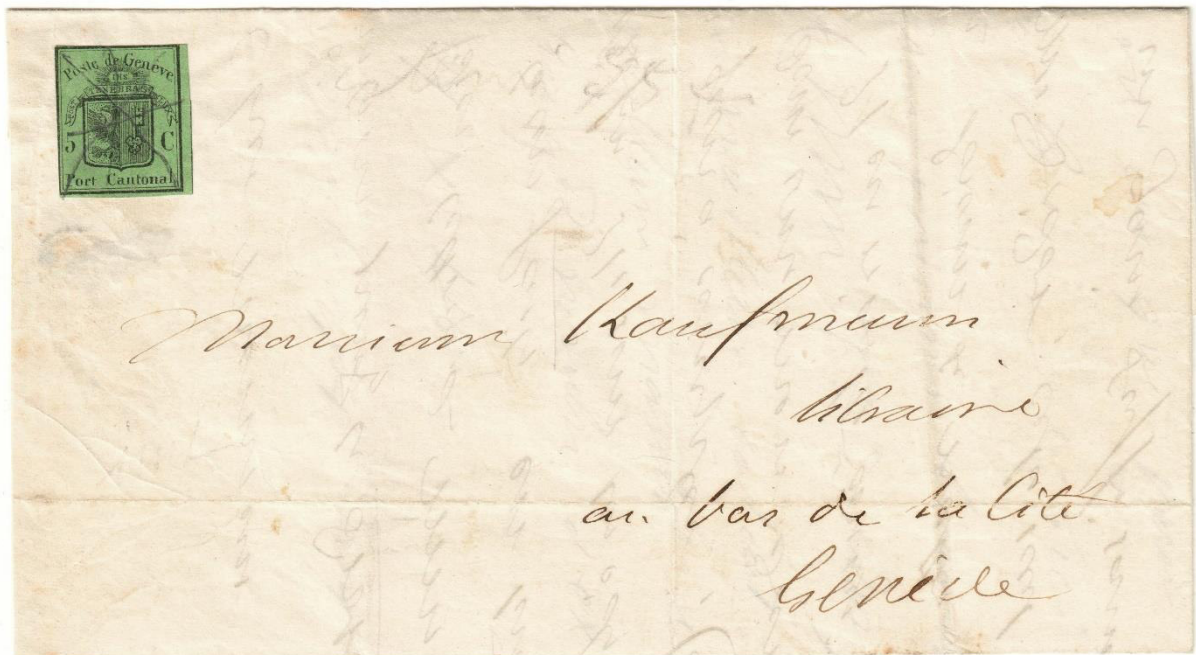 Poste de Genève
POST TENEBRAS LUX
5 C
Port Cantonal
Monsieur Kaufmann
libraire
au bas de la Cité
Genève